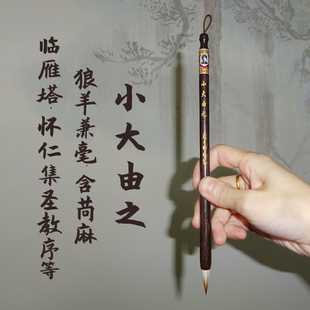 小大由之
狼羊兼毫 含苘麻
临雁塔·怀仁集圣教序等
小大由之